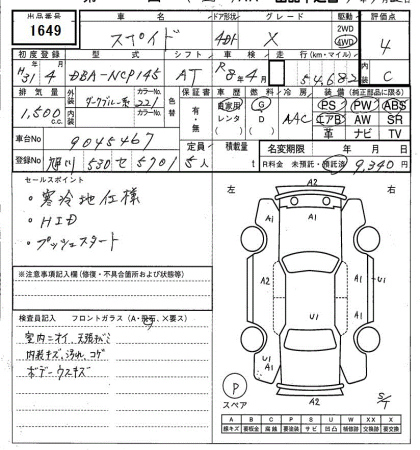 出品番号 1649
車名 スペイド
ドア形状 4DH
グレード X
駆動 2WD 4WD
評価点 4
内装 C
初度登録 H31年4月
型式 DBA-NCP145
シフト AT
車検 R8年4月
走行(km・マイル) 54,682
排気量 1,500 c.c.
外装 ダークブルー系
カラーNo. 221
内装
カラーNo.
色替
保証書 有・無
車歴 自家用 レンタ
燃料 G D
冷房 AAC
装備(純正部品に限る)
PS PW ABS
エアB AW SR
革 ナビ TV
車台No 9045467
定員 5人
積載量 t
名変期限 年 月 日
登録No 旭川 530 せ 5701
R料金 未預託・預託済 9,340円
セールスポイント
・寒冷地仕様
・HID
・プッシュスタート
※注意事項記入欄(修復・不具合箇所および状態等)
検査員記入 フロントガラス(A・飛石、X要ス)
室内ニオイ
内装キズ、汚れ、コゲ
ボデーウスキズ
左 右
A2
A1 A1
A1
A2
A1
U1 U1
A1
A2
P
スペア
S/T
A B C P S U W X XX
線キズ 要板金 腐蝕 要塗装 サビ 凹凸 補修跡 交換跡 要交換